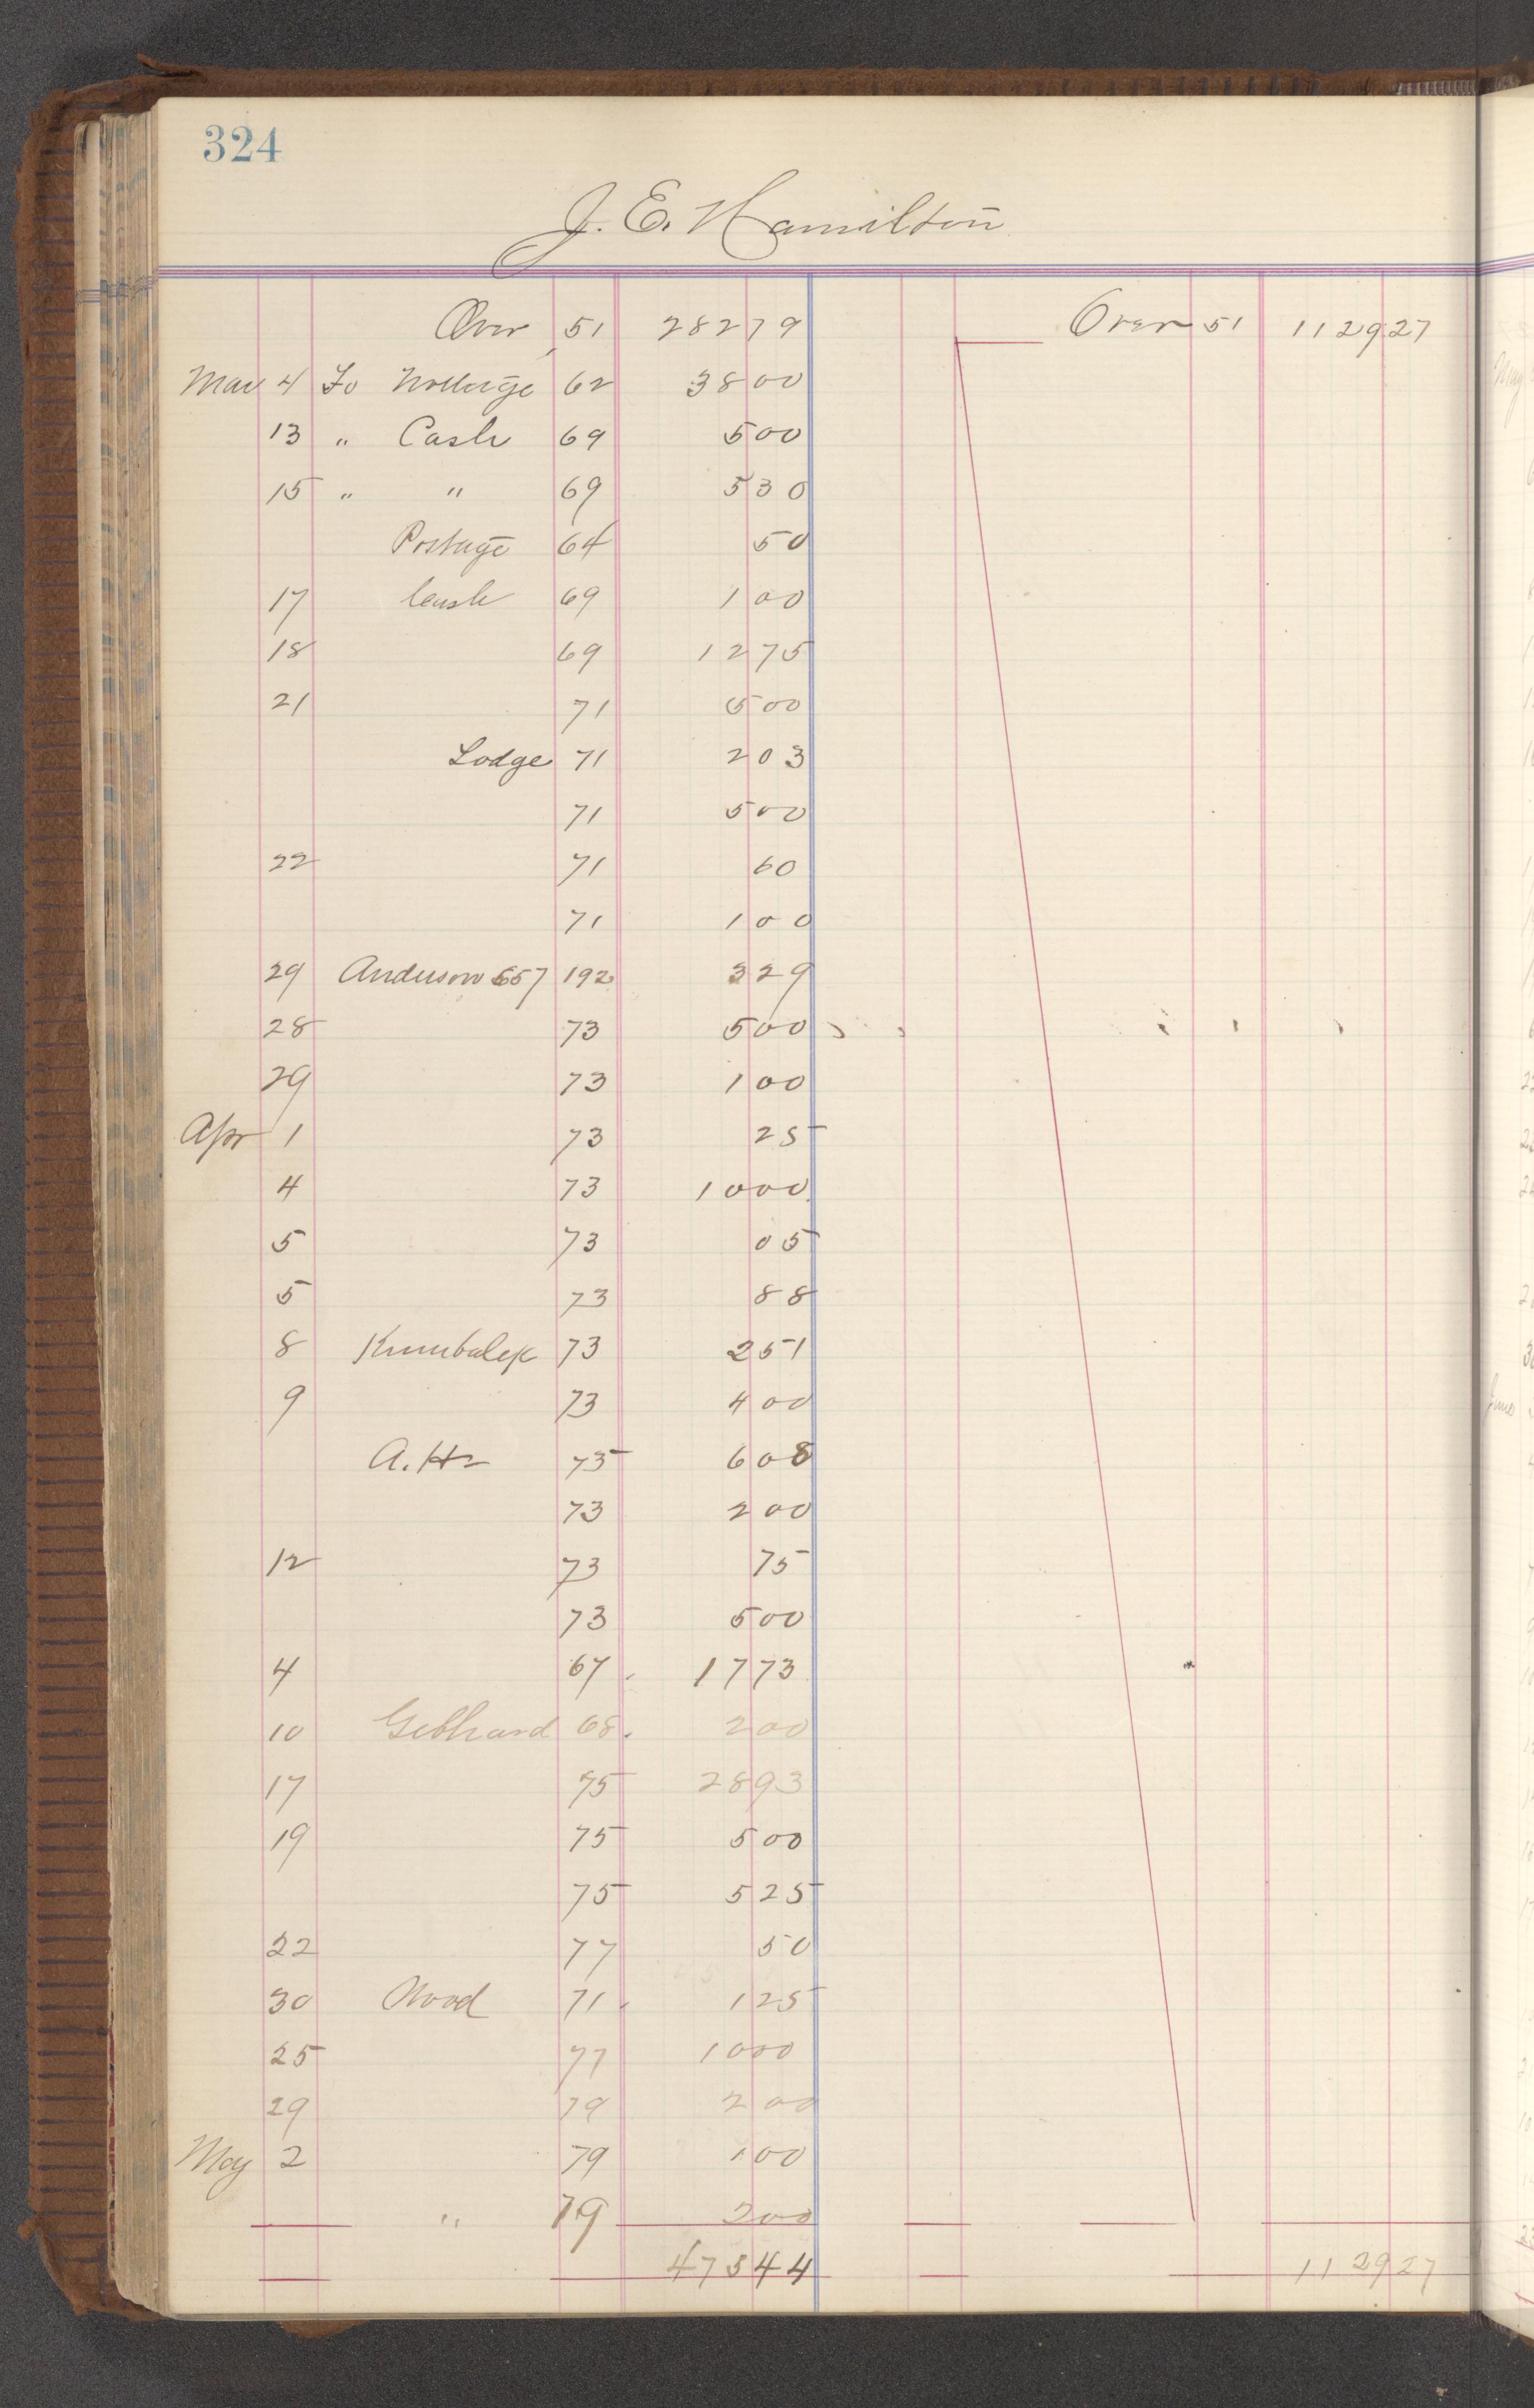 324
J. E. Hamilton
Over 51 282 79 Over 51 1129 27
Mar 4 To 62 38 00
13 " Cash 69 5 00
15 " " 69 5 30
Postage 64 50
17 Cash 69 1 00
18 69 12 75
21 71 5 00
Lodge 71 2 03
71 5 00
22 71 60
71 1 00
29 Anderson 557 192 3 29
28 73 5 00
29 73 1 00
Apr 1 73 25
4 73 10 00
5 73 05
5 73 88
8 73 2 51
9 73 4 00
A. H 75 6 08
73 2 00
12 73 75
73 5 00
4 67 17 73
10 Gebhard 68 2 00
17 75 28 93
19 75 5 00
75 5 25
22 77 50
30 Wood 71 1 25
25 77 10 00
29 79 2 00
May 2 79 1 00
" 79 2 00
475 44 1129 27
May
June